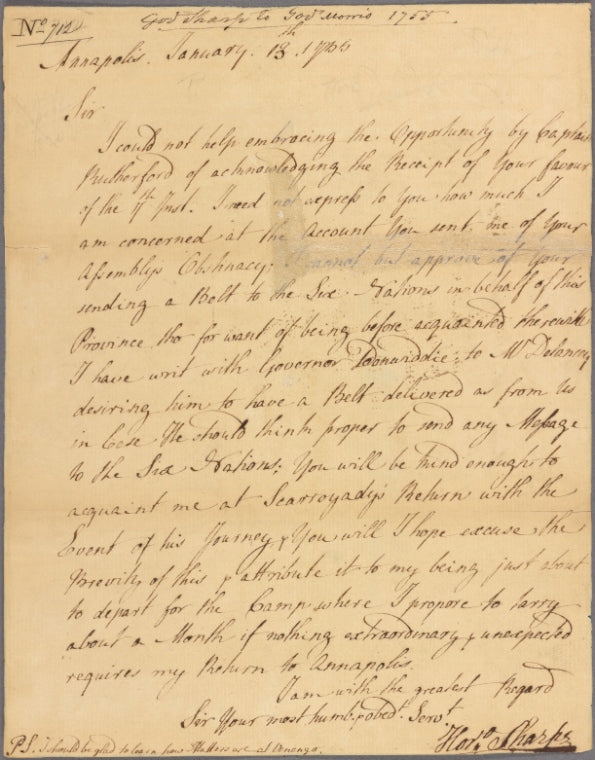 No 712
Govr Sharpe to Govr Morris 1755
Annapolis. January. 13th 1755
Sir
I could not help embracing the Opportunity by Captain
Rutherford of acknowledging the Receipt of Your favour
of the 7th Inst. I need not express to You how much I
am concerned at the Account You sent me of Your
Assemblys Obstinacy; I cannot but approve of Your
sending a Belt to the Six Nations in behalf of this
Province tho for want of being before acquainted therewith
I have writ with Governor Dinwiddie to Mr Delancey
desiring him to have a Belt delivered as from Us
in Case He should think proper to send any Message
to the Six Nations; You will be kind enough to
acquaint me at Scarroyadys Return with the
Event of his Journey & You will I hope excuse the
Brevity of this & attribute it to my being just about
to depart for the Camp where I propose to tarry
about a Month if nothing extraordinary & unexpected
requires my Return to Annapolis.
I am with the greatest Regard
Sir Your most humb. & obedt. Servt
Horo. Sharpe
P.S. I should be glad to learn how Matters are at Onongo.